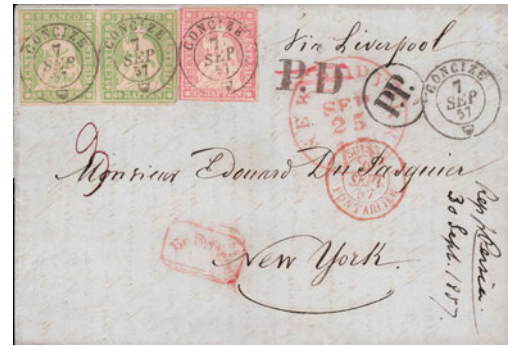 CONCIZE
7
SEP
57
CONCIZE
7
SEP
57
CONCIZE
7
SEP
57
Via Liverpool
P.D
P.P.
CONCIZE
7
SEP
57
SEP
25
SUISSE
SEPT
57
PONTARLIER
Monsieur Edouard Du Pasquier
New York.
Rep p Persia
30 Sept. 1857.